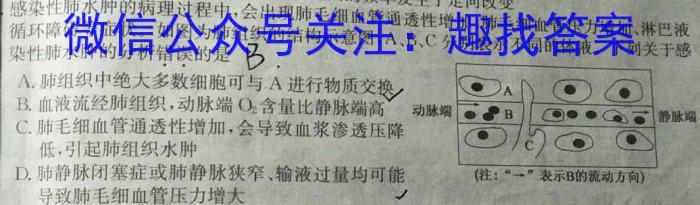 感染性肺水肿的病理过程中,会出现肺毛细血管通透性增
循环障
淋巴液
微信公众号关注：趣找答案
染性肺水肿的分析错误的是 B.
A. 肺组织中绝大多数细胞可与 A 进行物质交换
B. 血液流经肺组织,动脉端 O₂ 含量比静脉端高
C. 肺毛细血管通透性增加,会导致血浆渗透压降
低,引起肺组织水肿
D. 肺静脉闭塞症或肺静脉狭窄、输液过量均可能
导致肺毛细血管压力增大
A
动脉端
B
静脉端
C
(注：“→”表示B的流动方向)